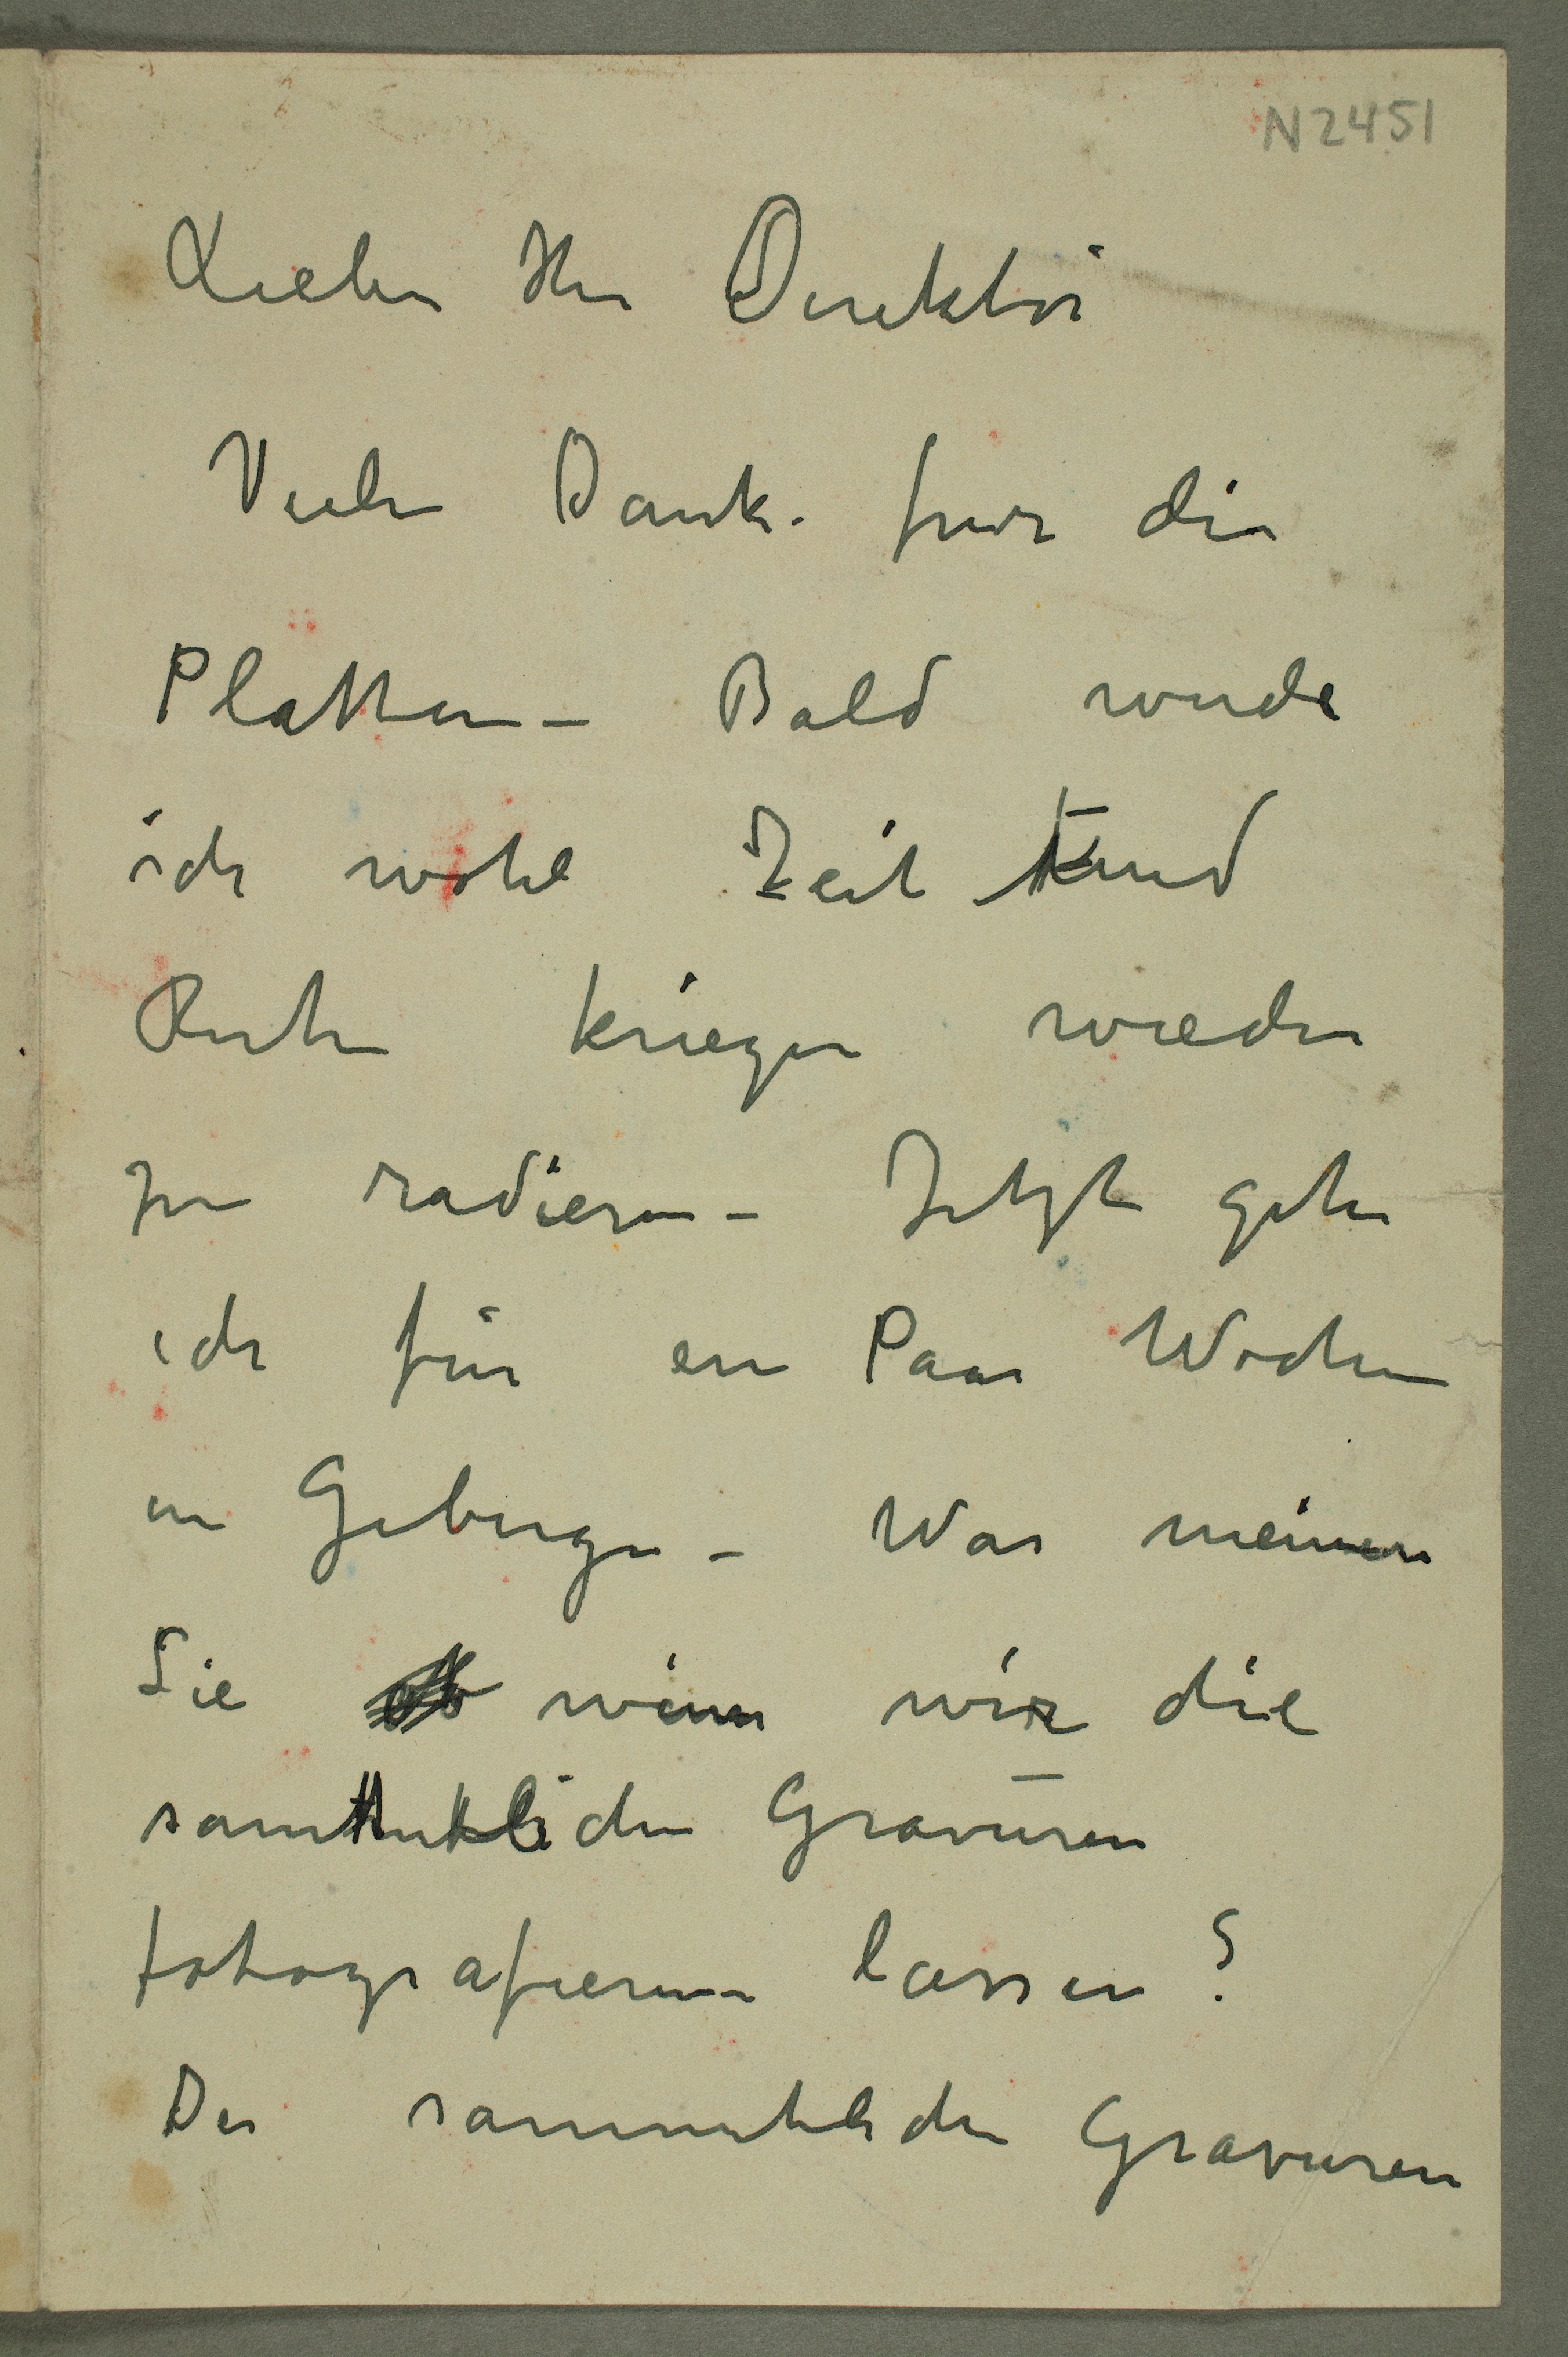 N2451
Lieber Herr Direktor
Vielen Dank fuor die
Platten – Bald werde
ich wohl Zeit und
Ruhe kriegen wieder
zu radieren – Jetzt gehe
ich für ein Paar Wochen
in Gebirge – Was meinen
Sie wenn wir die
sammtlichen Gravuren
fotografieren lassen?
Die sammtlichen Gravuren